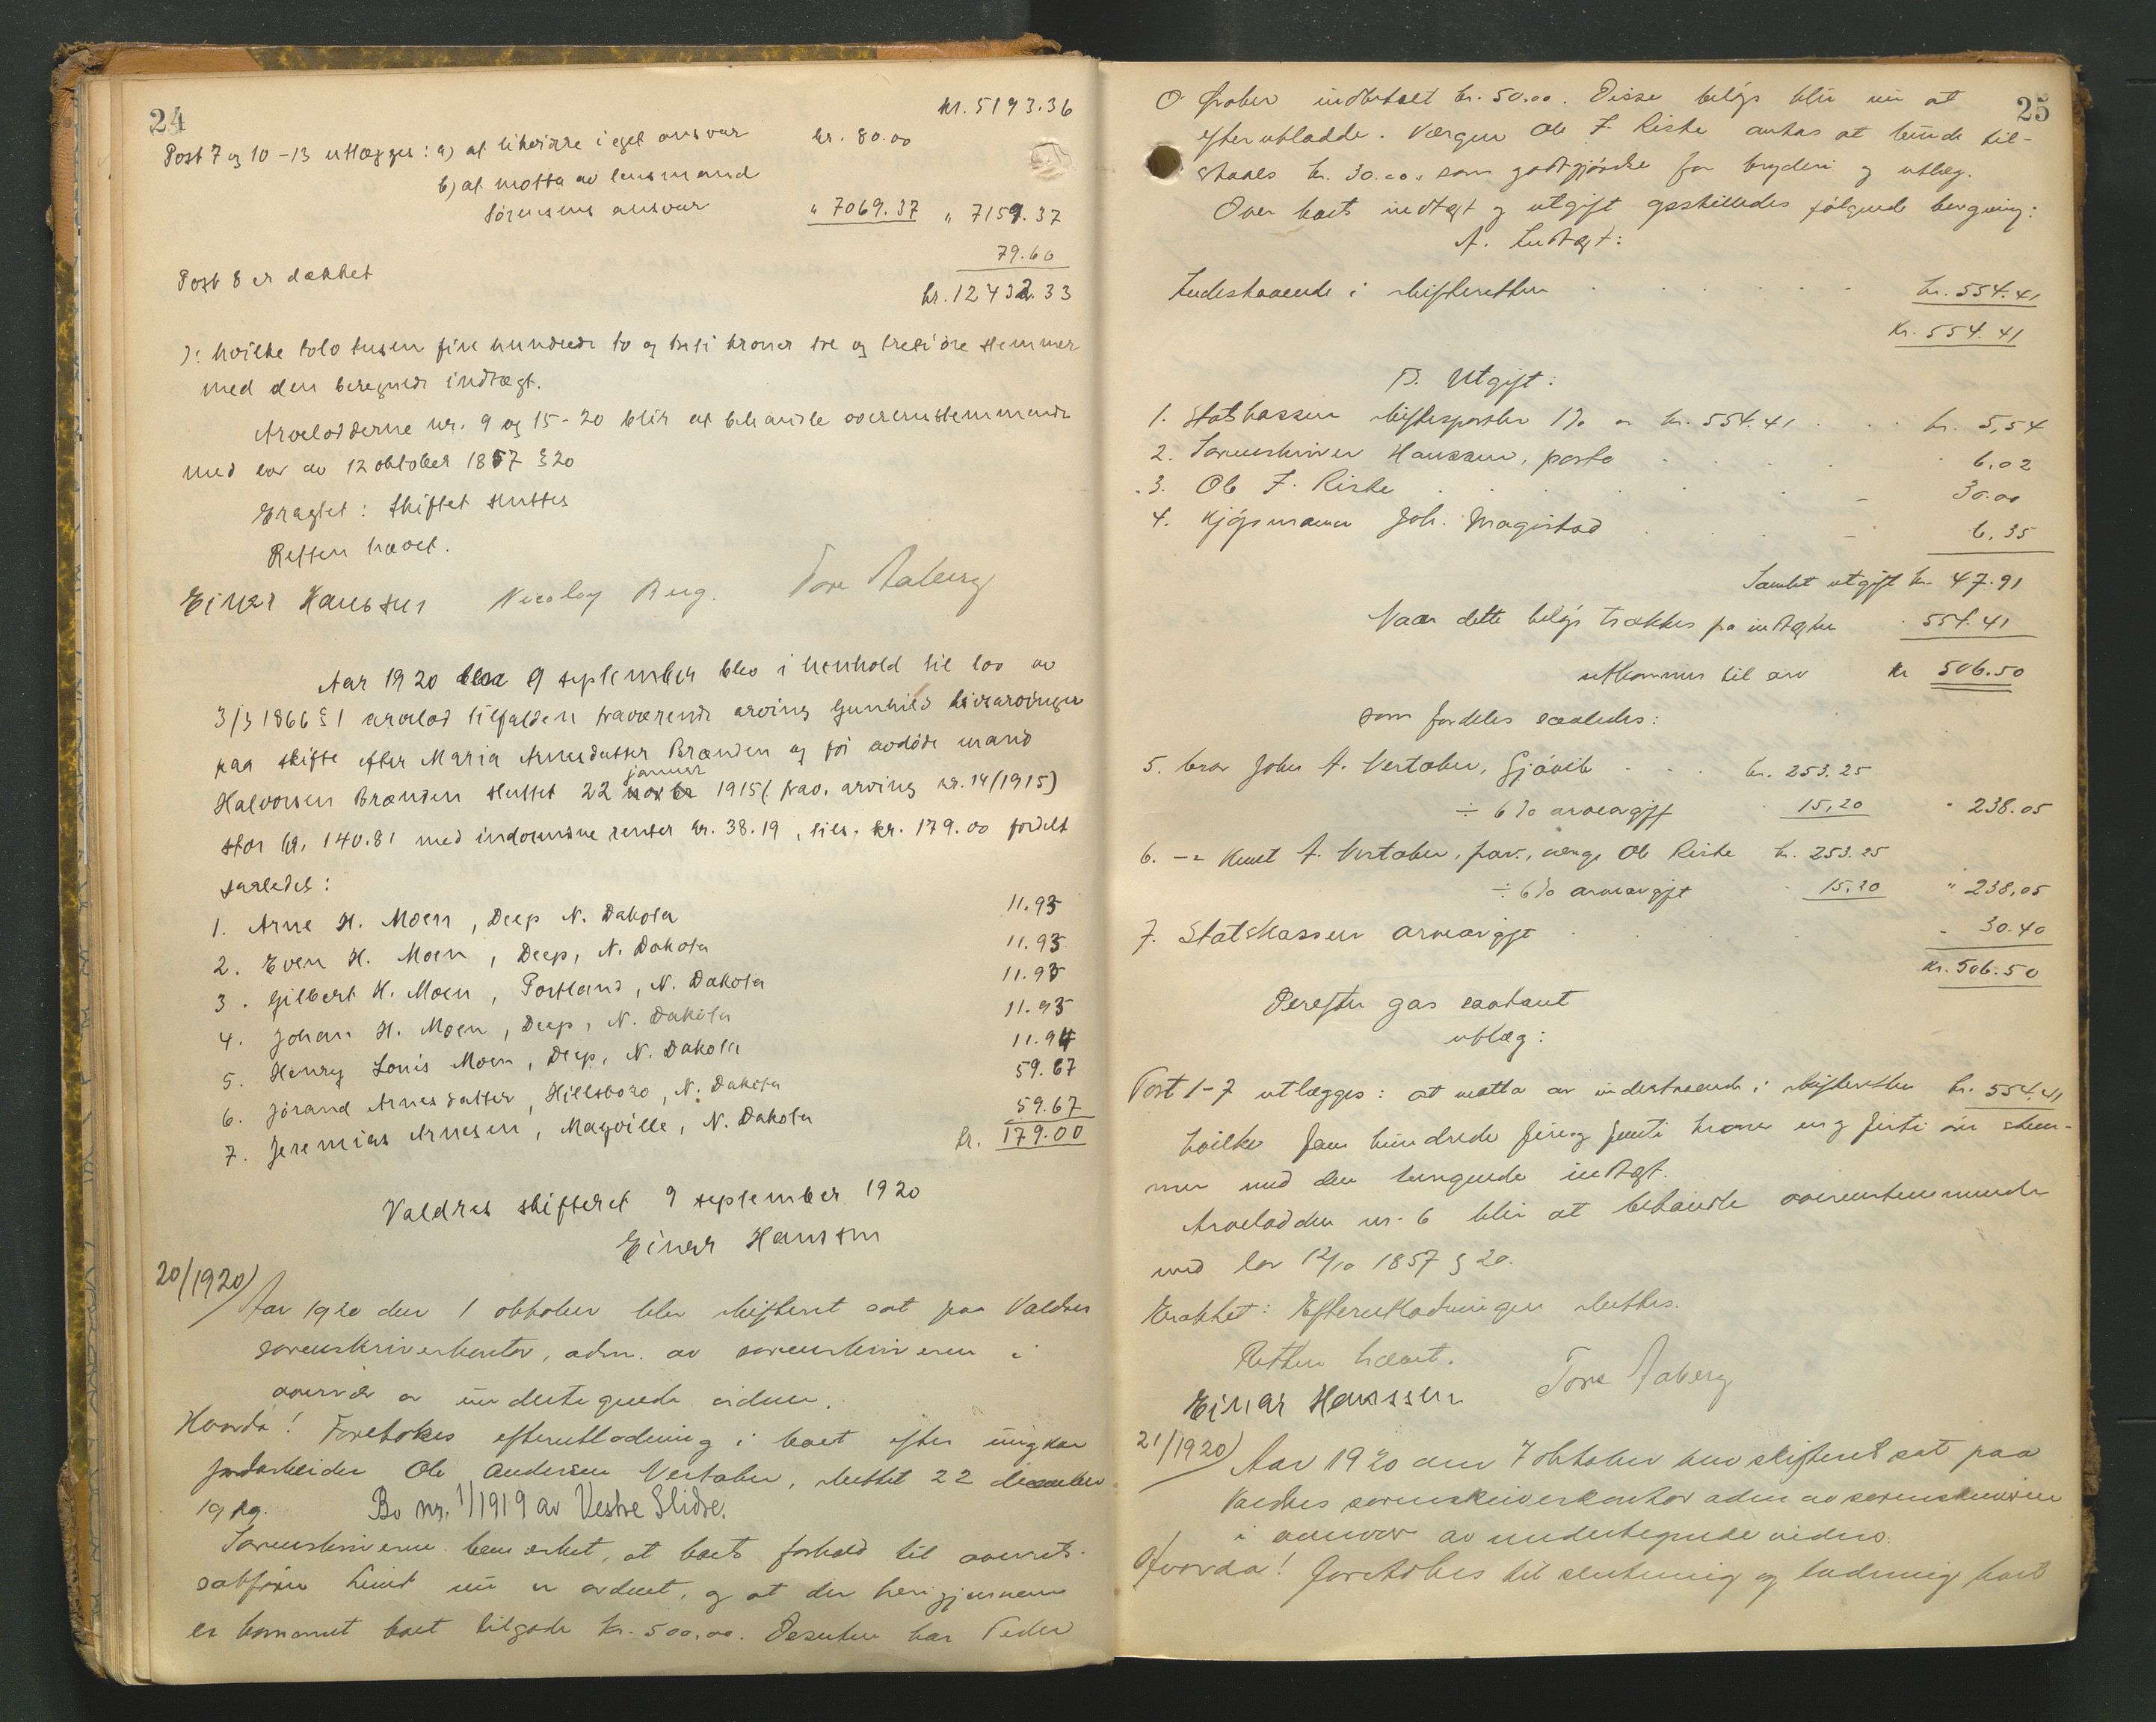 24
kr. 5193.36
Post 7 og 10-13 utlægges: a) at likvidere i eget ansvar kr. 80.00
b) at motta av lensmand
Sörensens ansvar " 7069.37 " 7159.37
Post 8 er dækket 79.60
kr. 12432.33
): hvilke tolv tusen fire hundrede to og treti kroner tre og treti öre stemmer
med den beregnede indtægt.
Arvelodderne nr. 9 og 15-20 blir at behandle overensstemmende
med lov av 12 oktober 1857 § 20
Eragtet: Skiftet sluttes
Retten hævet.
Einar Hanssen Nicolay Berg. Tore Aaberg
Aar 1920 den 9 september blev i henhold til lov av
3/3 1866 § 1 arvelod tilfalden fraværende arving Gunhild livsarvinger
paa skifte efter Maria Arnesdatter Brænden og för avdöde mand
Halvorsen Brænden sluttet 22 januar 1915 (frav. arving nr. 14/1915)
stor kr. 140.81 med indvundne renter kr. 38.19, tils. kr. 179.00 fordelt
saaledes:
1. Arne H. Moen, Deep N. Dakota 11.93
2. Even H. Moen, Deep, N. Dakota 11.93
3. Gilbert H. Moen, Portland, N. Dakota 11.93
4. Johan H. Moen, Deep, N. Dakota 11.93
5. Henry Louis Moen, Deep, N. Dakota 11.94
6. Jörand Arnesdatter, Hillsboro, N. Dakota 59.67
7. Jeremias Arnesen, Mayville, N. Dakota 59.67
kr. 179.00
Valdres skifteret 9 september 1920
Einar Hanssen
20/1920) Aar 1920 den 1 oktober blev skifteret sat paa Valdres
sorenskriverkontor, adm. av sorenskriveren i
overvær av undertegnede vidner.
Hvorda! Foretokes efterutlodning i boet efter ungkar
jordarbeider Ole Andersen Vestaber, sluttet 22 december
1919. Bo nr. 1/1919 av Vestre Slidre.
Sorenskriveren bemerket, at boets forhold til overrets-
sakförer Lund nu er ordnet, og at der herigjennem
er kommet boet tilgode kr. 500,00. Desuten har Peder
25
O. indbetalt kr. 50.00. Disse beløp blir nu at
efterutlodde. Værgen Ole F. Riske antas at burde til-
staaes kr. 30.00 som godtgjörelse for bryderi og utlæg.
Over boets indtægt og utgift opstilledes fölgende beregning:
A. Indtægt:
Indestaaende i skifteretten kr. 554.41
Kr. 554.41
B. Utgift:
1. Statskassen skiftesportler 1% av kr. 554.41 kr. 5,54
2. Sorenskriver Hanssen, porto 6,02
3. Ole F. Riske 30.00
4. Kjöpmann Joh. Magistad 6,35
Samlet utgift kr 47.91
Naar dette belöp trækkes fra indtægten 554.41
utkommer til arv kr 506.50
som fordeles saaledes:
5. bror John A. Vestaber, Gjövik kr. 253.25
÷ 6% arveavgift 15,20 " 238.05
6. -"- Knut A. Vestaber, frav., værge Ole Riske kr. 253.25
÷ 6% arveavgift 15,20 " 238,05
7. Statskassen arveavgift 30.40
Kr. 506.50
Derefter gas saadant
utlæg:
Post 1-7 utlægges: at motta av indestaaende i skifteretten kr. 554.41
hvilke fem hundrede fire og femti kroner en og firti öre stem-
mer med den beregnede indtægt.
Arvelodden nr. 6 blir at behandle overenstemmende
med lov 12/10 1857 § 20.
Eraktet: Efterutlodningen sluttes.
Retten hævet.
Einar Hanssen Tore Aaberg
21/1920) Aar 1920 den 7 oktober blev skifteret sat paa
Valdres sorenskriverkontor adm av sorenskriveren
i overvær av undertegnede vidner.
Hvorda! Foretokes til slutning og lodning boet